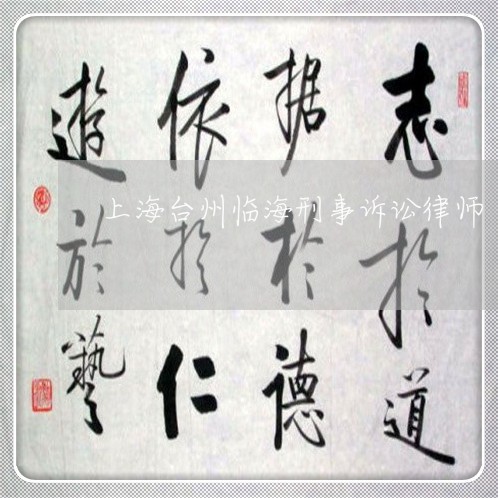 志於道
据於德
依於仁
遊於藝
上海台州临海刑事诉讼律师